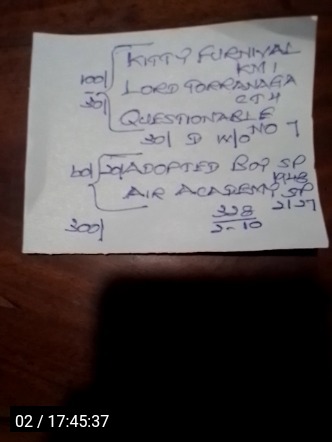 KITTY FURNIVAL
KM1
100/ LORD TORRANAGA
30/ CT4
QUESTIONABLE
NO 7
30/ D W/O
20/ ADOPTED BOY SP
1948
AIR ACADEMY SP
2127
300/ 328
2-10
02 / 17:45:37